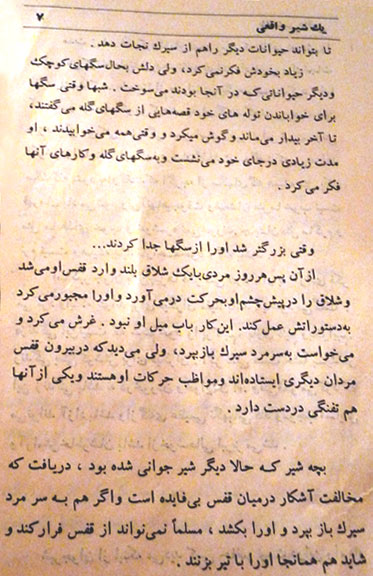 یك شیر واقعی ۷
تا بتواند حیوانات دیگر راهم از سیرك نجات دهد .
زیاد بخودش فکر نمی‌کرد، ولی دلش بحال سگهای کوچك
و دیگر حیواناتی‌کـه در آنجا بودند می‌سوخت . شبها وقتی سگها
برای خواباندن توله های خود قصه‌هایی از سگهای گله می‌گفتند،
تا آخر بیدار می‌ماند و گوش میکرد و وقتی همه می‌خوابیدند ، او
مدت زیادی درجای خود می‌نشست و به‌سگهای گله و کارهای آنها
فکر می‌کرد .
وقتی بزرگتر شد او را از سگها جدا کردند...
از آن پس هر روز مردی با یك شلاق بلند وارد قفس او می‌شد
و شلاق را در پیش چشم او بحرکت در می‌آورد و او را مجبور می‌کرد
به‌دستوراتش عمل کند. این کار باب میل او نبود . غرش می‌کرد و
می‌خواست به‌سر مرد سیرك باز بپرد، ولی می‌دید که در بیرون قفس
مردان دیگری ایستاده‌اند و مواظب حرکات او هستند و یکی از آنها
هم تفنگی در دست دارد .
بچه شیر کـه حالا دیگر شیر جوانی شده بود ، دریافت که
مخالفت آشکار در میان قفس بی‌فایده است و اگر هم بـه سر مرد
سیرك باز بپرد و او را بکشد ، مسلماً نمی‌تواند از قفس فرار کند و
شاید هم همانجا او را با تیر بزنند .